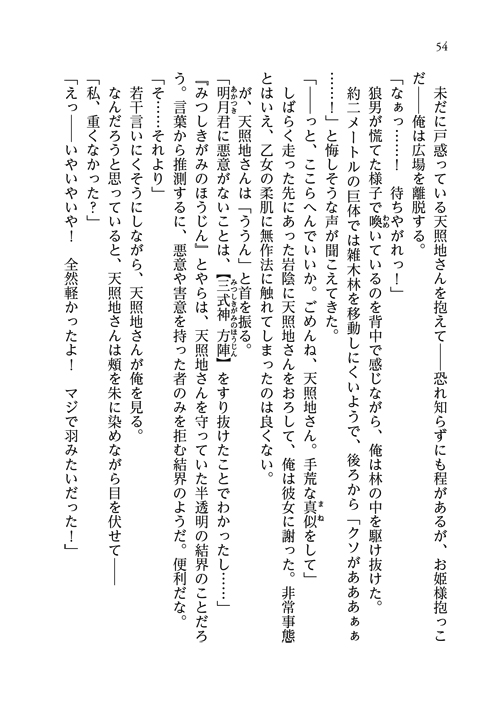 54
未だに戸惑っている天照地さんを抱えて――恐れ知らずにも程があるが、お姫様抱っこ
だ――俺は広場を離脱する。
「なぁっ……！　待ちやがれっ！」
狼男が慌てた様子で喚いているのを背中で感じながら、俺は林の中を駆け抜けた。
約二メートルの巨体では雑木林を移動しにくいようで、後ろから「クソがあああぁぁ
……！」と悔しそうな声が聞こえてきた。
「――っと、ここらへんでいいか。ごめんね、天照地さん。手荒な真似をして」
しばらく走った先にあった岩陰に天照地さんをおろして、俺は彼女に謝った。非常事態
とはいえ、乙女の柔肌に無作法に触れてしまったのは良くない。
が、天照地さんは「ううん」と首を振る。
「明月君に悪意がないことは、【三式神方陣】をすり抜けたことでわかったし……」
『みつしきがみのほうじん』とやらは、天照地さんを守っていた半透明の結界のことだろ
う。言葉から推測するに、悪意や害意を持った者のみを拒む結界のようだ。便利だな。
「そ……それより」
若干言いにくそうにしながら、天照地さんが俺を見る。
なんだろうと思っていると、天照地さんは頬を朱に染めながら目を伏せて――
「私、重くなかった？」
「えっ――いやいやいや！　全然軽かったよ！　マジで羽みたいだった！」